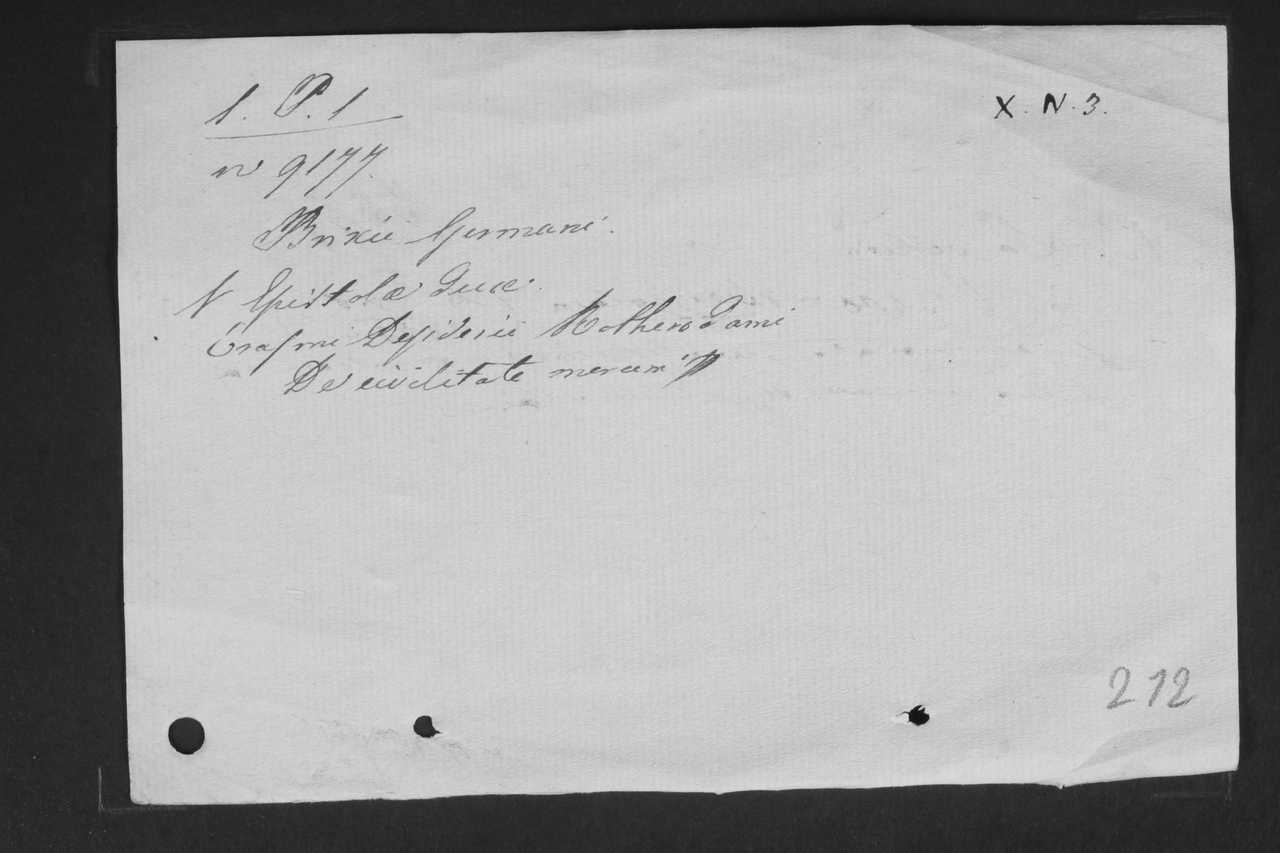 1. P. 1
X. N. 3.
n 9177.
Brixii Germani.
Epistolæ Duæ.
Erasmi Desiderii Rotherodami
De civilitate morum
212